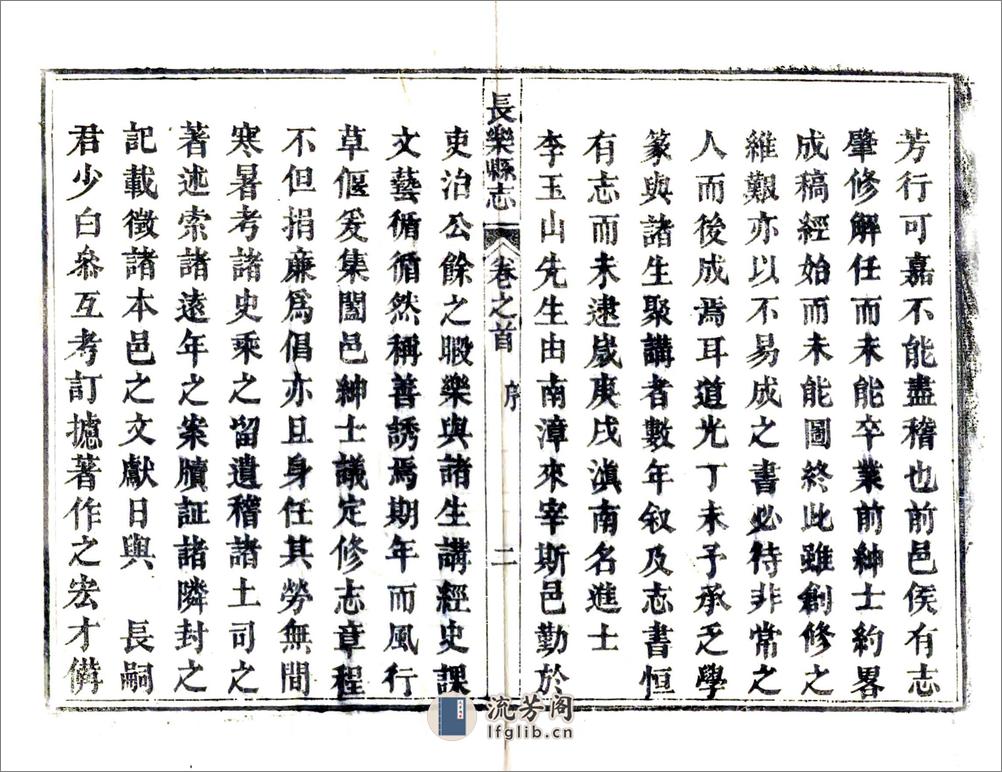 芳行可嘉不能盡稽也前邑侯有志
肇修解任而未能卒業前紳士約畧
成稿經始而未能圖終此雖創修之
維艱亦以不易成之書必待非常之
人而後成焉耳道光丁未予承乏學
篆與諸生聚講者數年叙及志書恒
有志而未逮歲庚戌滇南名進士
李玉山先生由南漳來宰斯邑勤於
長樂縣志 卷之首 序 二
吏治公餘之暇樂與諸生講經史課
文藝循循然稱善誘焉期年而風行
草偃爰集闔邑紳士議定修志章程
不但捐廉爲倡亦且身任其勞無間
寒暑考諸史乘之留遺稽諸土司之
著述索諸遠年之案牘証諸隣封之
記載徵諸本邑之文獻日與 長嗣
君少白叅互考訂摅著作之宏才備
流芳阁
lfglib.cn